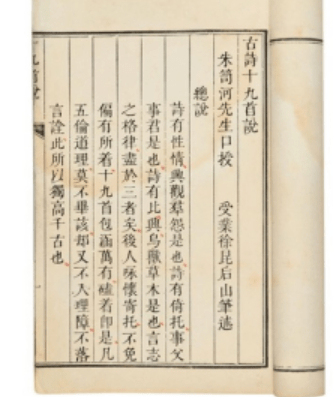 古詩十九首說
朱笥河先生口授　受業徐昆后山筆述
總說
詩有性情興觀羣怨是也詩有倚托事父
事君是也詩有比興鳥獸草木是也言志
之格律盡於三者矣後人咏懷寄托不免
偏有所着十九首包涵萬有磕着即是凡
五倫道理莫不畢該却又不入理障不落
言詮此所以獨高千古也
九首說